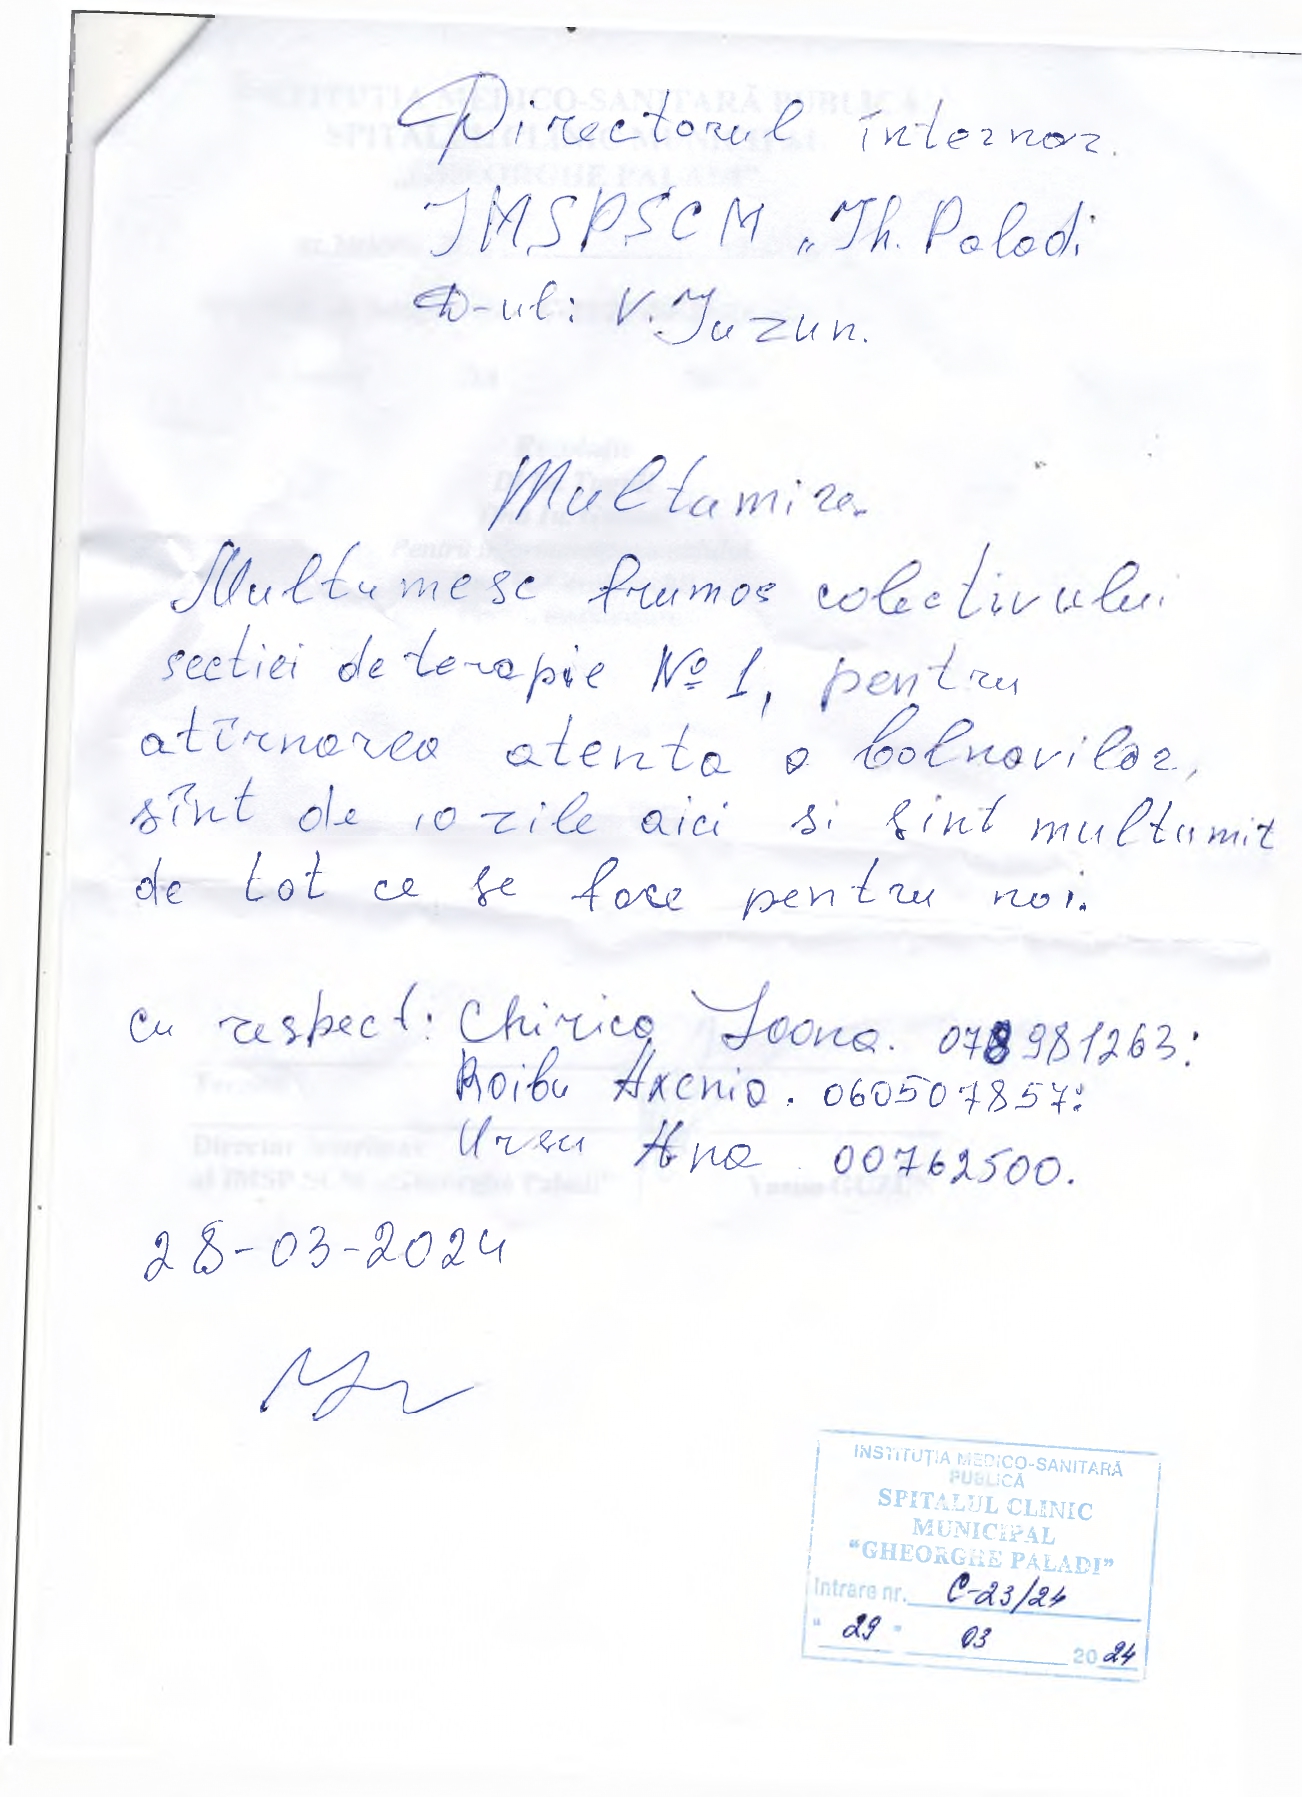 Directorul internor.
IMSPSCM „Gh. Paladi
D-ul: V. Guzun.
Multumire.
Multumesc frumos colectivului
sectiei de terapie № 1, pentru
atîrnarea atenta a bolnavilor,
sînt de 10 zile aici si sint multumit
de tot ce se face pentru noi.
cu respect: Chirica Ioana. 078981263:
Roibu Axenia. 060507857:
Ursu Ana 00762500.
28-03-2024
INSTITUȚIA MEDICO-SANITARĂ
PUBLICĂ
SPITALUL CLINIC
MUNICIPAL
"GHEORGHE PALADI"
Intrare nr. C-23/24
"29" 03 2024